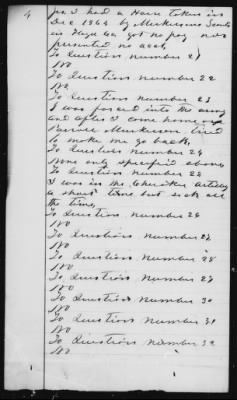 4
yes I had a Horse taken in
Dec 1864 by Merkersons Scouts
in Floyd Ga got no pay nor
presented no acct,
To Question number 21
No
To Question number 22
No,
To Question number 23
I was forced into the army
and after I come home
Merkerson tried
to make me go back,
To Question number 24
None only specified above
To Question number 25
I was in the Cherokee Artillery
a short time but sick all
the time,
To Question number 26
No
To Question number 27
No
To Question number 28
No
To Question number 29
No
To Question number 30
No
To Question number 31
No
To Question number 32
No